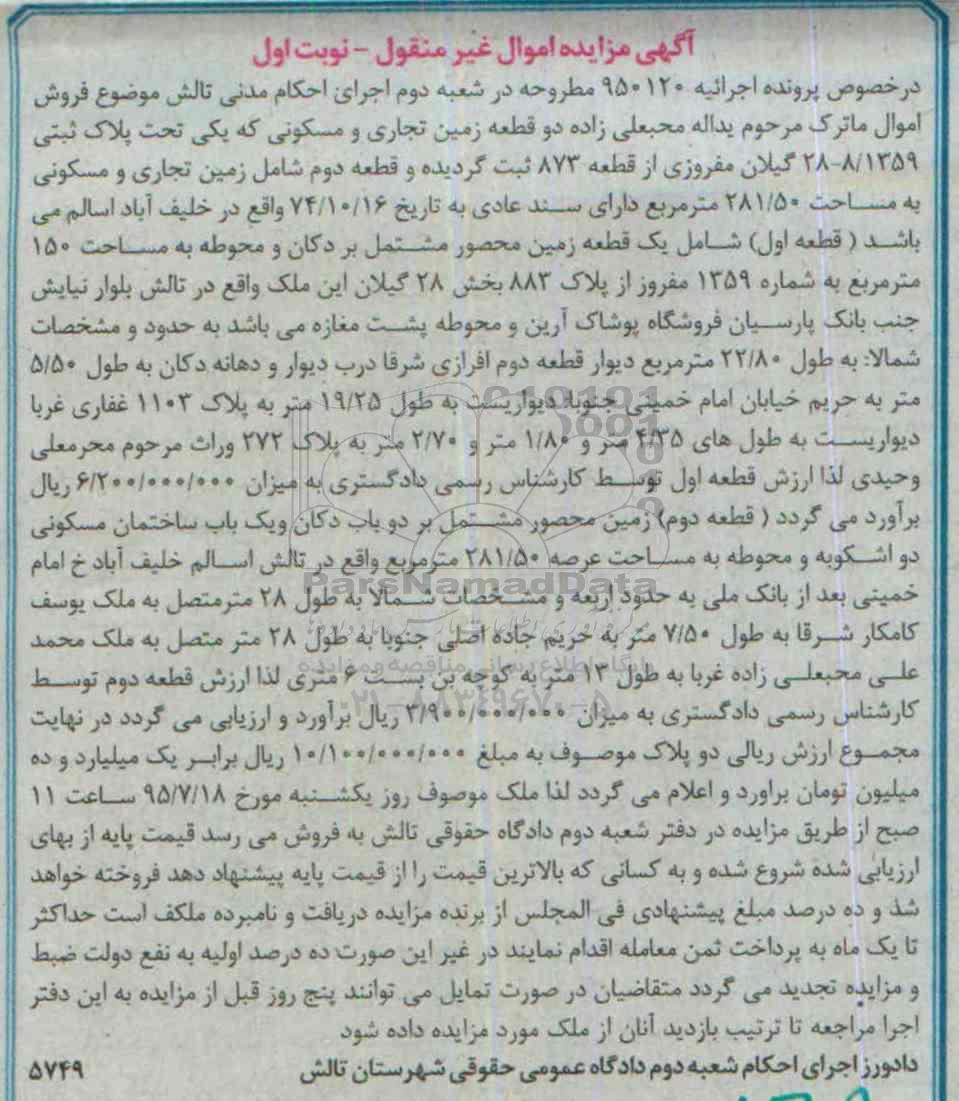 آگهی مزایده اموال غیر منقول - نوبت اول
درخصوص پرونده اجرائیه ۹۵۰۱۲۰ مطروحه در شعبه دوم اجرای احکام مدنی تالش موضوع فروش
اموال ماترک مرحوم یداله محبعلی زاده دو قطعه زمین تجاری و مسکونی که یکی تحت پلاک ثبتی
۲۸-۸/۱۳۵۹ گیلان مفروزی از قطعه ۸۷۳ ثبت گردیده و قطعه دوم شامل زمین تجاری و مسکونی
به مساحت ۲۸۱/۵۰ مترمربع دارای سند عادی به تاریخ ۷۴/۱۰/۱۶ واقع در خلیف آباد اسالم می
باشد ( قطعه اول) شامل یک قطعه زمین محصور مشتمل بر دکان و محوطه به مساحت ۱۵۰
مترمربع به شماره ۱۳۵۹ مفروز از پلاک ۸۸۳ بخش ۲۸ گیلان این ملک واقع در تالش بلوار نیایش
جنب بانک پارسیان فروشگاه پوشاک آرین و محوطه پشت مغازه می باشد به حدود و مشخصات
شمالا: به طول ۲۲/۸۰ مترمربع دیوار قطعه دوم افرازی شرقا درب دیوار و دهانه دکان به طول ۵/۵۰
متر به حریم خیابان امام خمینی جنوبا: دیواریست به طول ۱۹/۲۵ متر به پلاک ۱۱۰۳ غفاری غربا
دیواریست به طول های ۴/۳۵ متر و ۱/۸۰ متر و ۲/۷۰ متر به پلاک ۲۷۲ وراث مرحوم محرمعلی
وحیدی لذا ارزش قطعه اول توسط کارشناس رسمی دادگستری به میزان ۶/۲۰۰/۰۰۰/۰۰۰ ریال
برآورد می گردد ( قطعه دوم) زمین محصور مشتمل بر دو باب دکان ویک باب ساختمان مسکونی
دو اشکوبه و محوطه به مساحت عرصه ۲۸۱/۵۰ مترمربع واقع در تالش اسالم خلیف آباد خ امام
خمینی بعد از بانک ملی به حدود اربعه و مشخصات شمالا به طول ۲۸ مترمتصل به ملک یوسف
کامکار شرقا به طول ۷/۵۰ متر به حریم جاده اصلی جنوبا به طول ۲۸ متر متصل به ملک محمد
علی محبعلی زاده غربا به طول ۱۳ متر به کوچه بن بست ۶ متری لذا ارزش قطعه دوم توسط
کارشناس رسمی دادگستری به میزان ۳/۹۰۰/۰۰۰/۰۰۰ ریال برآورد و ارزیابی می گردد در نهایت
مجموع ارزش ریالی دو پلاک موصوف به مبلغ ۱۰/۱۰۰/۰۰۰/۰۰۰ ریال برابر یک میلیارد و ده
میلیون تومان براورد و اعلام می گردد لذا ملک موصوف روز یکشنبه مورخ ۹۵/۷/۱۸ ساعت ۱۱
صبح از طریق مزایده در دفتر شعبه دوم دادگاه حقوقی تالش به فروش می رسد قیمت پایه از بهای
ارزیابی شده شروع شده و به کسانی که بالاترین قیمت را از قیمت پایه پیشنهاد دهد فروخته خواهد
شد و ده درصد مبلغ پیشنهادی فی المجلس از برنده مزایده دریافت و نامبرده ملکف است حداکثر
تا یک ماه به پرداخت ثمن معامله اقدام نمایند در غیر این صورت ده درصد اولیه به نفع دولت ضبط
و مزایده تجدید می گردد متقاضیان در صورت تمایل می توانند پنج روز قبل از مزایده به این دفتر
اجرا مراجعه تا ترتیب بازدید آنان از ملک مورد مزایده داده شود
دادورز اجرای احکام شعبه دوم دادگاه عمومی حقوقی شهرستان تالش ۵۷۴۹
ParsNamadData
پایگاه اطلاع رسانی مناقصه و مزایده